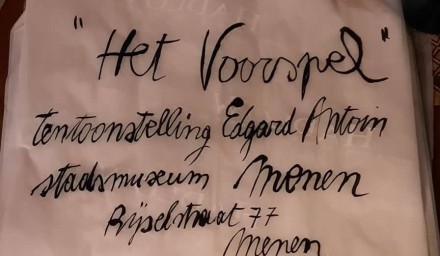 "Het Voorspel"
tentoonstelling Edgard Antoin
stadsmuseum Menen
Rijselstraat 77
Menen